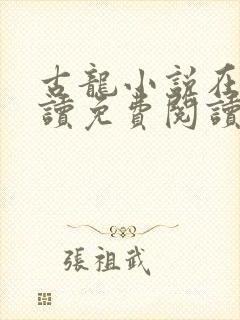 古龍小說在
讀免費閱讀
張祖武